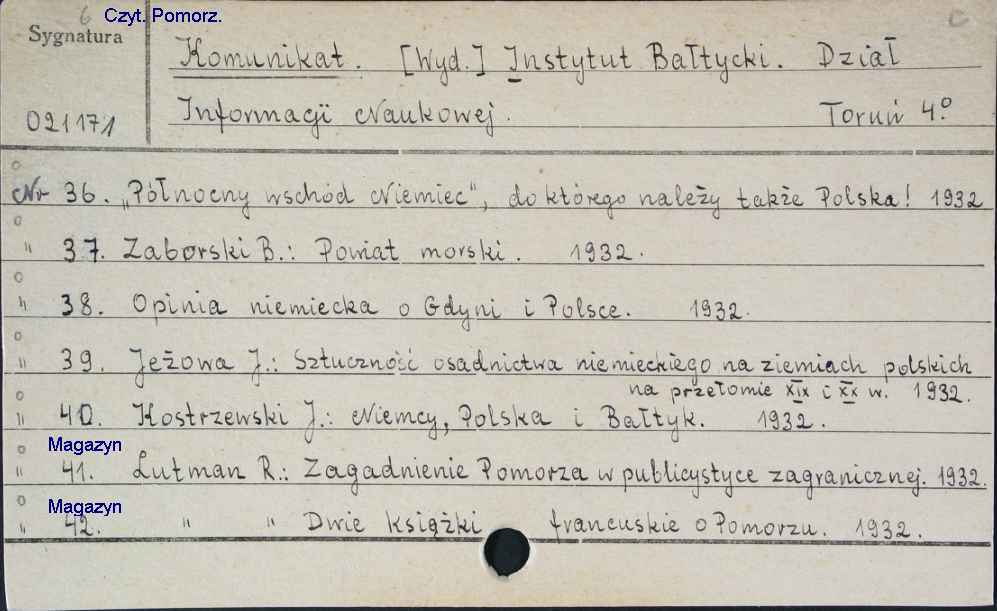 6 Czyt. Pomorz. C
Sygnatura
Komunikat. [Wyd.] Instytut Bałtycki. Dział
021171 Informacji Naukowej. Toruń 4.°
Nr 36. „Północny wschód Niemiec", do którego należy także Polska! 1932
" 37. Zaborski B.: Powiat morski. 1932.
" 38. Opinia niemiecka o Gdyni i Polsce. 1932.
" 39. Jeżowa J.: Sztuczność osadnictwa niemieckiego na ziemiach polskich
na przełomie XIX i XX w. 1932.
" 40. Kostrzewski J.: Niemcy, Polska i Bałtyk. 1932.
Magazyn
" 41. Lutman R.: Zagadnienie Pomorza w publicystyce zagranicznej. 1932.
Magazyn
" 42. " " Dwie książki francuskie o Pomorzu. 1932.